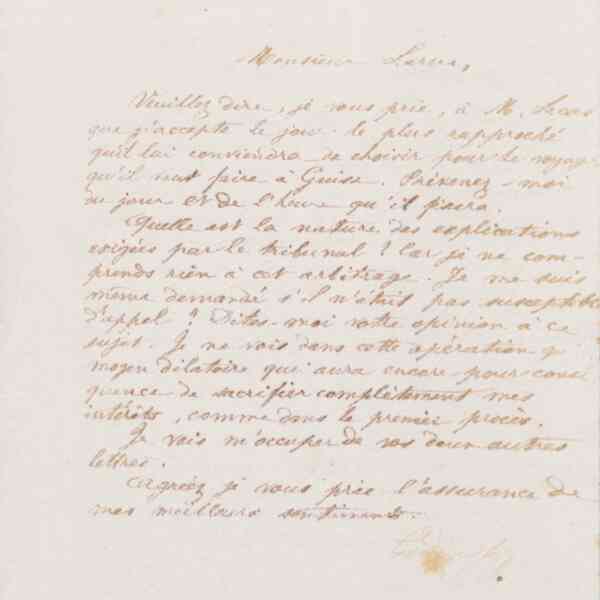 Monsieur Larue,
Veuillez dire, je vous prie, à M. Lecas
que j'accepte le jour le plus rapproché
qu'il lui conviendra de choisir pour le voyage
qu'il veut faire à Guise. Prévenez-moi
du jour et de l'heure qu'il fixera.
Quelle est la nature des explications
exigées par le tribunal ? Car je ne com-
prends rien à cet arbitrage. Je me suis
même demandé s'il n'était pas susceptible
d'appel ? Dites-moi votre opinion à ce
sujet. Je ne vois dans cette opération qu'
moyen dilatoire qui aura encore pour consé
quence de sacrifier complètement mes
intérêts, comme dans le premier procès.
Je vais m'occuper de vos deux autres
lettres.
Agréez je vous prie l'assurance de
mes meilleurs sentiments.